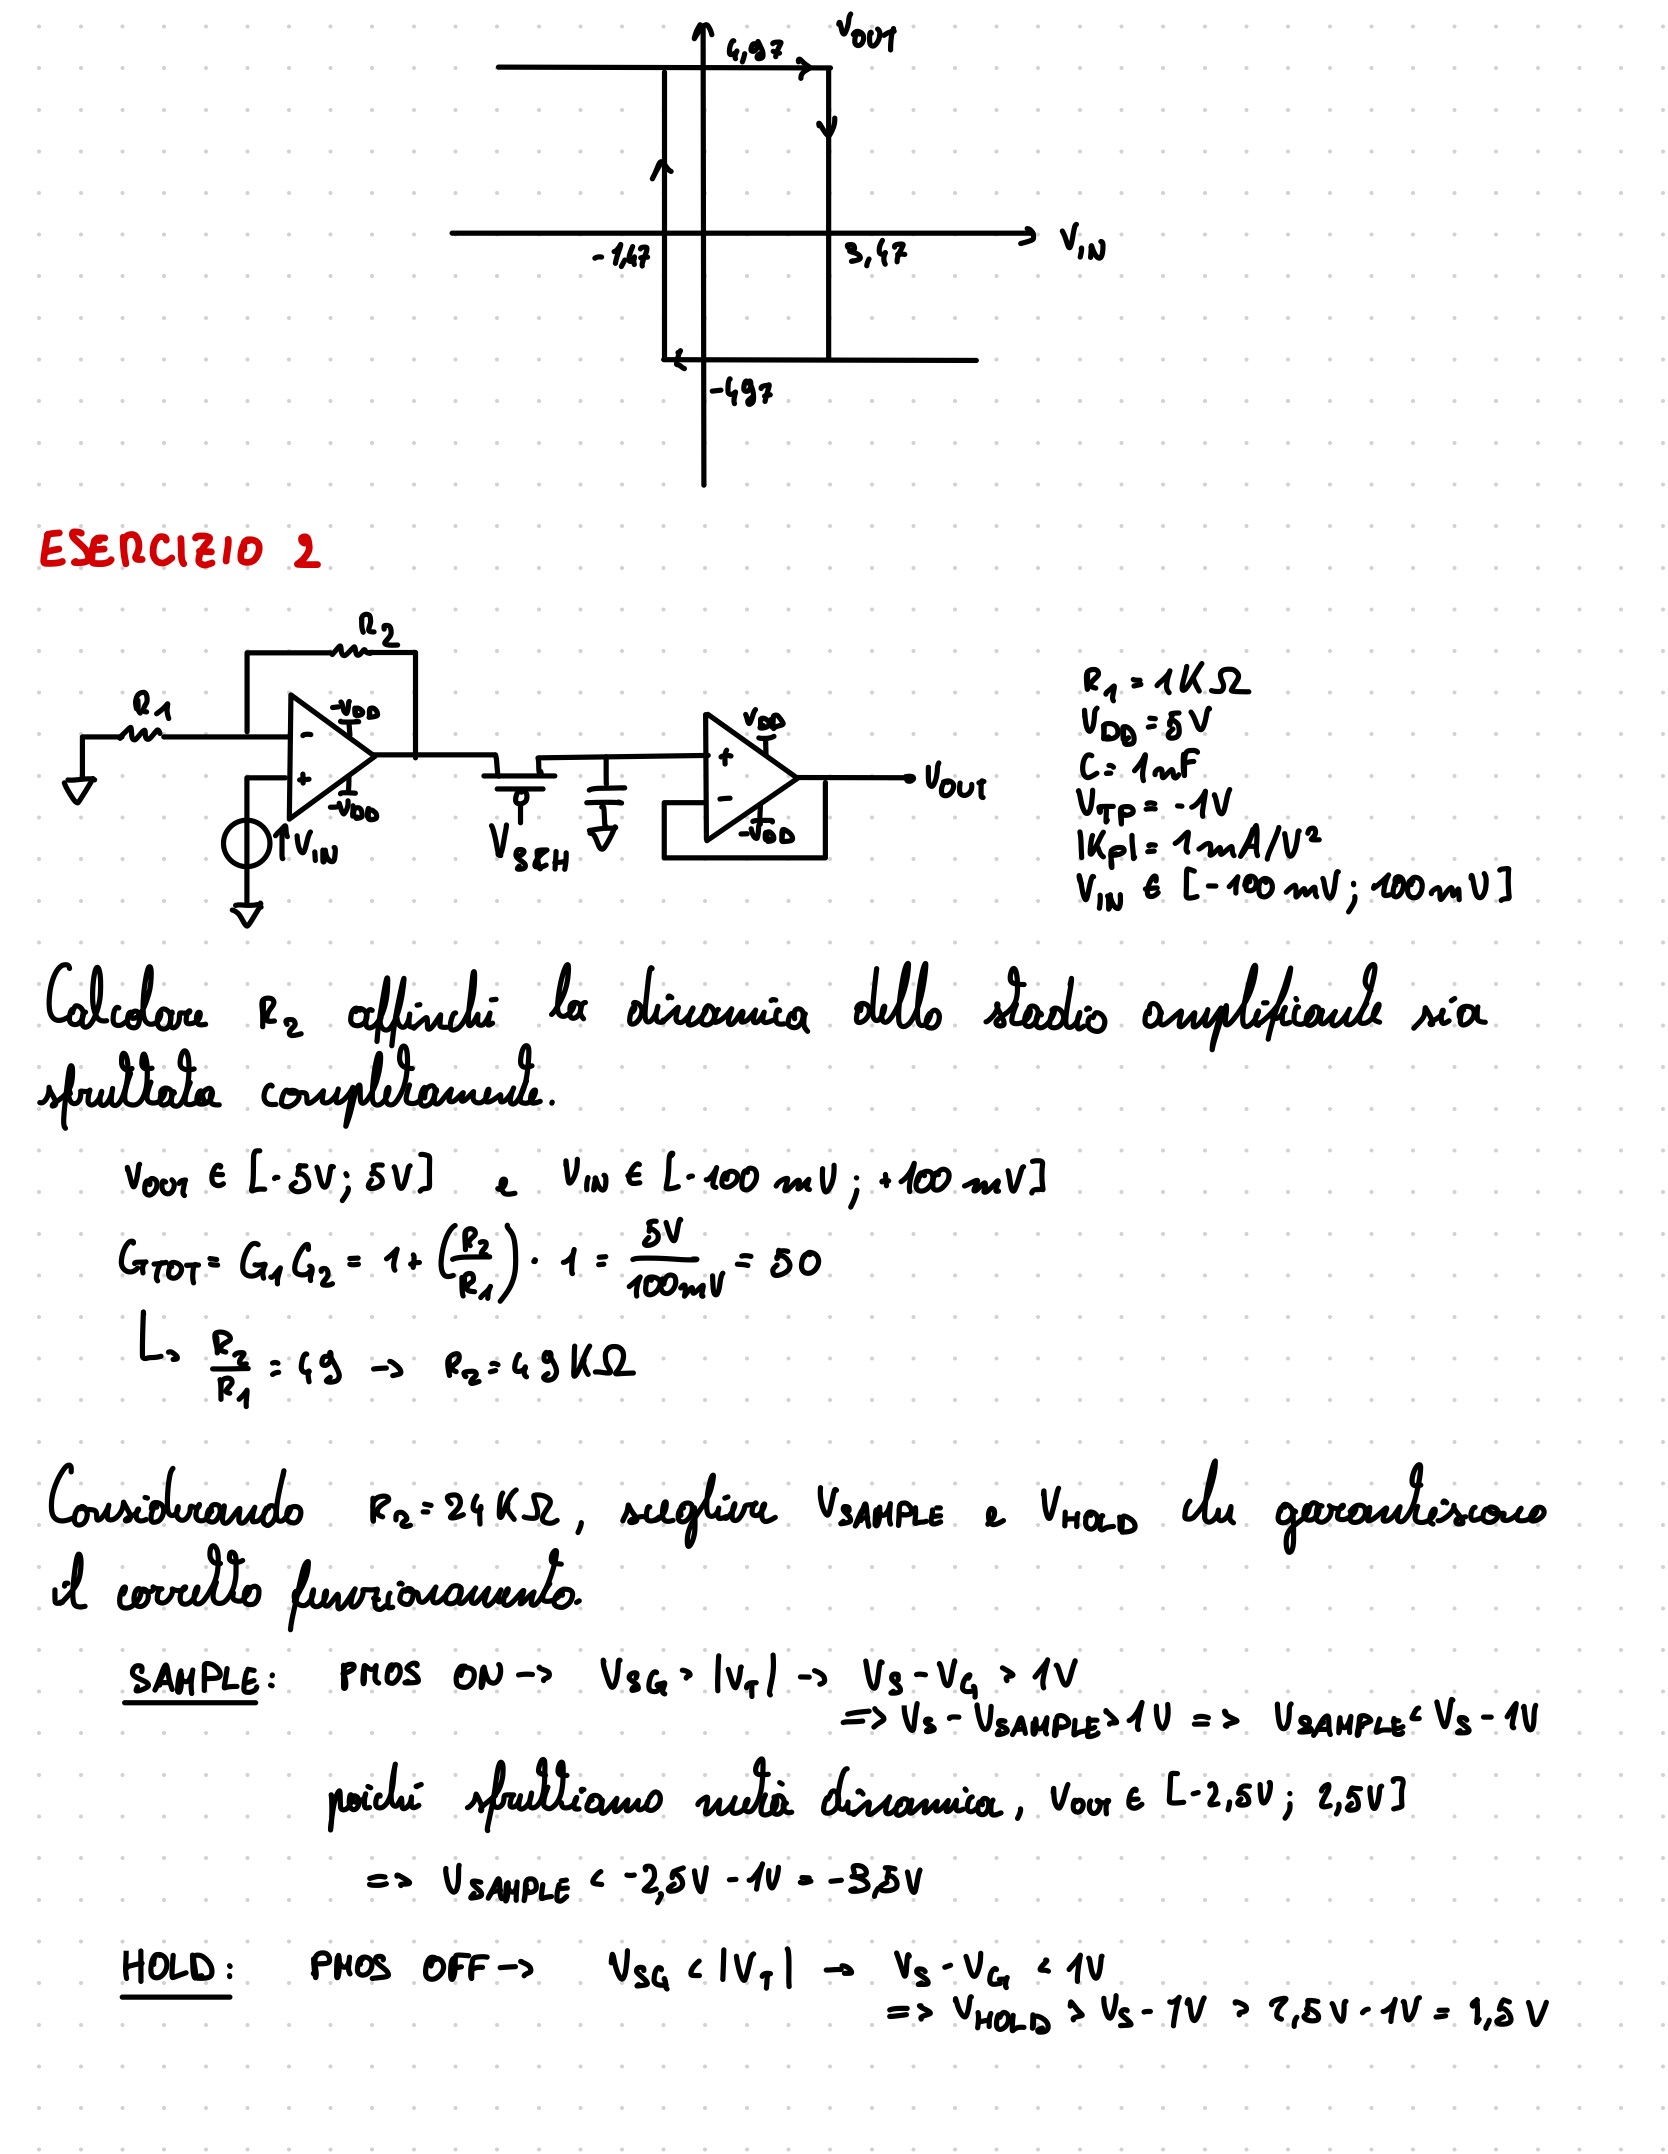 4,97 V_OUT
-1,47 3,47 V_IN
-4,97
ESERCIZIO 2
R_2
R_1 -V_DD V_DD
- +
+ -
-V_DD -V_DD
V_IN V_S&H V_OUT
R_1 = 1KΩ
V_DD = 5V
C = 1nF
V_TP = -1V
|K_P| = 1mA/V²
V_IN ∈ [-100mV; 100mV]
Calcolare R_2 affinché la dinamica dello stadio amplificante sia
sfruttata completamente.
V_OUT ∈ [-5V; 5V] e V_IN ∈ [-100 mV; +100 mV]
G_TOT = G_1 G_2 = 1+(R_2/R_1) · 1 = 5V/100mV = 50
↳ R_2/R_1 = 49 → R_2 = 49KΩ
Considerando R_2 = 24KΩ, scegliere V_SAMPLE e V_HOLD che garantiscono
il corretto funzionamento.
SAMPLE: PMOS ON → V_SG > |V_T| → V_S - V_G > 1V
=> V_S - V_SAMPLE > 1V => V_SAMPLE < V_S - 1V
poiché sfruttiamo metà dinamica, V_OUT ∈ [-2,5V; 2,5V]
=> V_SAMPLE < -2,5V - 1V = -3,5V
HOLD: PMOS OFF → V_SG < |V_T| → V_S - V_G < 1V
=> V_HOLD > V_S - 1V > 2,5V - 1V = 1,5V